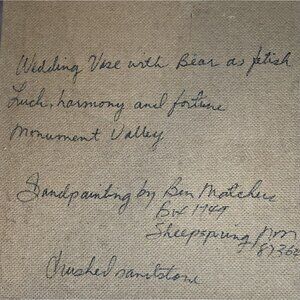 Wedding Vase with Bear as fetish
Luck, harmony and fortune
Monument Valley
Sandpainting by Ben Matchers
Box 1749
Sheepspring NM
87364
Crushed sandstone